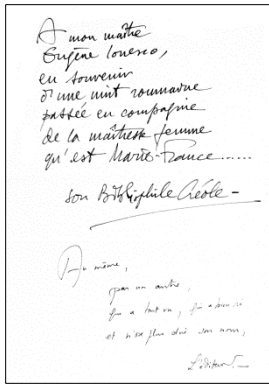 A mon maître
Eugène Ionesco,
en souvenir
d'une nuit roumaine
passée en compagnie
de la maîtresse femme
qu'est Marie-France......
son Bibliophile Créole -
Au même,
par un autre,
qui a tout vu,
et n'a plus son nom,
L'éditeur